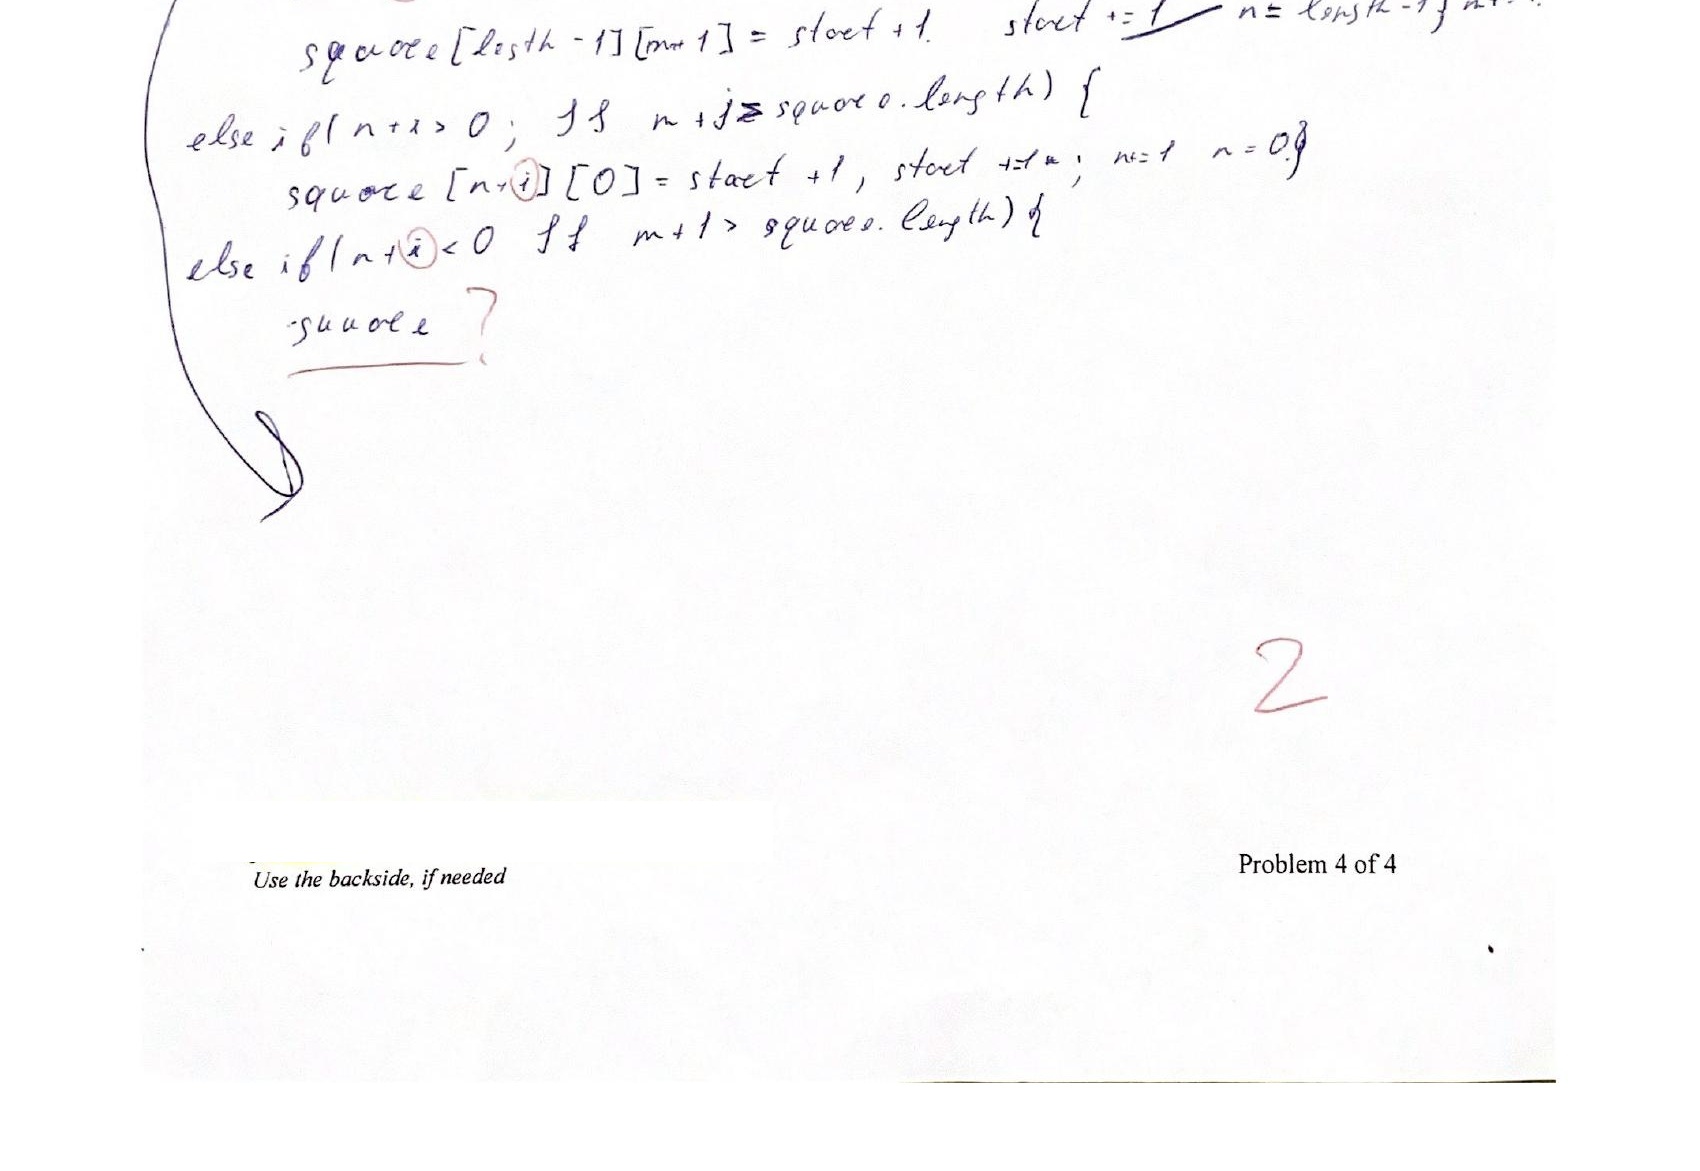 square [legth - 1] [m+ 1] = start + 1. start += 1 n = length - 1}
else if( n + i > 0 ; && m + j ≥ square.length) {
square [n+i] [0] = start +1, start +=1 ; n+= 1 n = 0}
else if( n + i < 0 && m + 1 > square. length) {
square ?
2
Use the backside, if needed
Problem 4 of 4